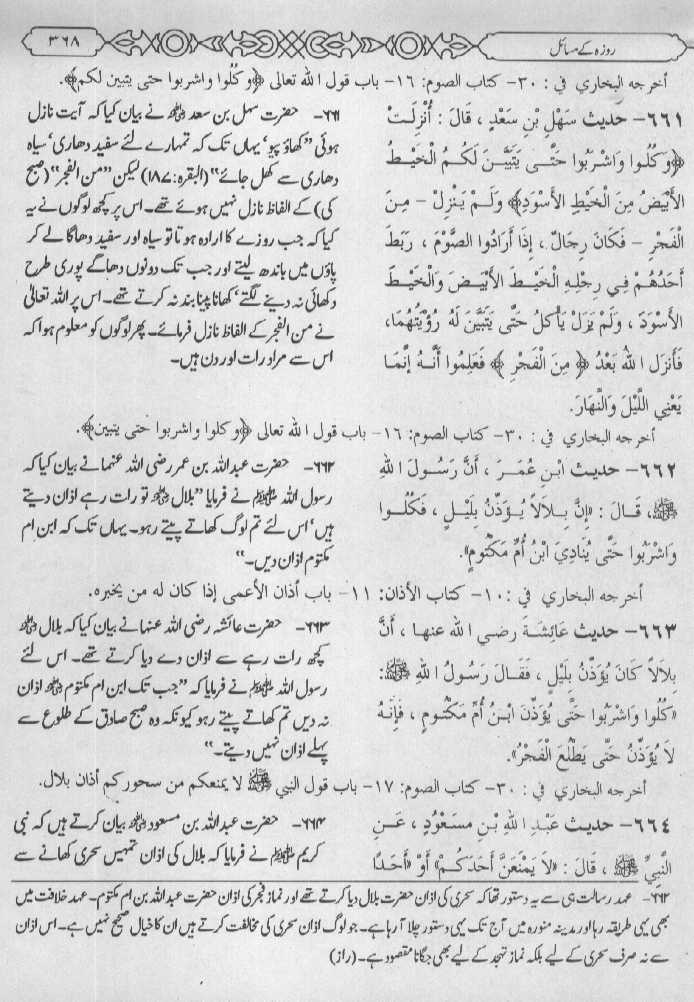 روزہ کے مسائل
۳۶۸
أخرجه البخاري في : ٣٠- كتاب الصوم: ١٦- باب قول الله تعالى ﴿وكُلُوا واشربوا حتى يتبين لكم﴾.
٦٦١- حديث سَهْلِ بْنِ سَعْدٍ ، قَالَ : أُنْزِلَتْ
﴿وَكُلُوا وَاشْرَبُوا حَتَّى يَتَبَيَّنَ لَكُمُ الْخَيْطُ
الأَبْيَضُ مِنَ الْخَيْطِ الأَسْوَدِ﴾ وَلَمْ يَنْزِلْ - مِنَ
الْفَجْرِ - فَكَانَ رِجَالٌ ، إِذَا أَرَادُوا الصَّوْمَ ، رَبَطَ
أَحَدُهُمْ فِي رِجْلِهِ الْخَيْطَ الأَبْيَضَ وَالْخَيْطَ
الأَسْوَدَ ، وَلَمْ يَزَلْ يَأْكُلُ حَتَّى يَتَبَيَّنَ لَهُ رُؤْيَتُهُمَا،
فَأَنْزَلَ اللهُ بَعْدُ ﴿ مِنَ الْفَجْرِ ﴾ فَعَلِمُوا أَنَّهُ إِنَّمَا
يَعْنِي اللَّيْلَ وَالنَّهَارَ.
۶۶۱- حضرت سہل بن سعد رضی اللہ عنہ نے بیان کیا کہ آیت نازل
ہوئی ”کھاؤ پیو‘ یہاں تک کہ تمہارے لئے سفید دھاری‘ سیاہ
دھاری سے کھل جائے“ (البقرہ:۱۸۷) لیکن ”من الفجر“ (صبح
کی) کے الفاظ نازل نہیں ہوئے تھے۔ اس پر کچھ لوگوں نے یہ
کیا کہ جب روزے کا ارادہ ہوتا تو سیاہ اور سفید دھاگا لے کر
پاؤں میں باندھ لیتے اور جب تک دونوں دھاگے پوری طرح
دکھائی نہ دینے لگتے‘ کھانا پینا بند نہ کرتے تھے۔ اس پر اللہ تعالیٰ
نے من الفجر کے الفاظ نازل فرمائے۔ پھر لوگوں کو معلوم ہوا کہ
اس سے مراد رات اور دن ہیں۔
أخرجه البخاري في : ٣٠- كتاب الصوم: ١٦- باب قول الله تعالى ﴿وكلوا واشربوا حتى يتبين﴾.
٦٦٢- حديث ابْنِ عُمَرَ ، أَنَّ رَسُولَ اللهِ
ﷺ، قَالَ : «إِنَّ بِلاَلاً يُؤَذِّنُ بِلَيْلٍ ، فَكُلُوا
وَاشْرَبُوا حَتَّى يُنَادِيَ ابْنُ أُمِّ مَكْتُومٍ».
۶۶۲- حضرت عبداللہ بن عمر رضی اللہ عنہما نے بیان کیا کہ
رسول اللہ ﷺ نے فرمایا ”بلال رضی اللہ عنہ تو رات رہے اذان دیتے
ہیں‘ اس لئے تم لوگ کھاتے پیتے رہو۔ یہاں تک کہ ابن ام
مکتوم اذان دیں۔“
أخرجه البخاري في : ١٠- كتاب الأذان: ١١- باب أذان الأعمى إذا كان له من يخبره.
٦٦٣- حديث عَائِشَةَ رضي الله عنها ، أَنَّ
بِلاَلاً كَانَ يُؤَذِّنُ بِلَيْلٍ ، فَقَالَ رَسُولُ اللهِ ﷺ:
«كُلُوا وَاشْرَبُوا حَتَّى يُؤَذِّنَ ابْنُ أُمِّ مَكْتُومٍ ، فَإِنَّهُ
لاَ يُؤَذِّنُ حَتَّى يَطْلُعَ الْفَجْرُ».
۶۶۳- حضرت عائشہ رضی اللہ عنہا نے بیان کیا کہ بلال رضی اللہ عنہ
کچھ رات رہے سے اذان دے دیا کرتے تھے۔ اس لئے
رسول اللہ ﷺ نے فرمایا کہ ”جب تک ابن ام مکتوم رضی اللہ عنہ اذان
نہ دیں تم کھاتے پیتے رہو کیونکہ وہ صبح صادق کے طلوع سے
پہلے اذان نہیں دیتے۔“
أخرجه البخاري في : ٣٠- كتاب الصوم: ١٧- باب قول النبي ﷺ لا يمنعكم من سحوركم أذان بلال.
٦٦٤- حديث عَبْدِ اللهِ بْنِ مسْعُودٍ ، عَنِ
النَّبِيِّ ﷺ ، قَالَ : «لاَ يَمْنَعَنَّ أَحَدَكُمْ» أَوْ «أَحَدًا
۶۶۴- حضرت عبداللہ بن مسعود رضی اللہ عنہ بیان کرتے ہیں کہ نبی
کریم ﷺ نے فرمایا کہ بلال کی اذان تمہیں سحری کھانے سے
۶۶۲- عہد رسالت ہی سے یہ دستور تھا کہ سحری کی اذان حضرت بلال دیا کرتے تھے اور نماز فجر کی اذان حضرت عبداللہ بن ام مکتوم۔ عہد خلافت میں
بھی یہی طریقہ رہا اور مدینہ منورہ میں آج تک یہی دستور چلا آ رہا ہے۔ جو لوگ اذان سحری کی مخالفت کرتے ہیں ان کا خیال صحیح نہیں ہے۔ اس اذان
سے نہ صرف سحری کے لیے بلکہ نماز تہجد کے لیے بھی جگانا مقصود ہے۔ (راز)